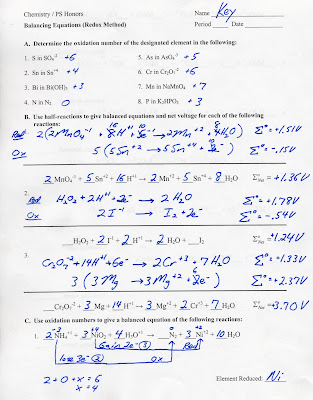 Chemistry / PS Honors Name Key
Balancing Equations (Redox Method) Period Date
A. Determine the oxidation number of the designated element in the following:
1. S in SO₄⁻² +6 5. As in AsO₄⁻³ +5
2. Sn in Sn⁺⁴ +4 6. Cr in Cr₂O₇⁻² +6
3. Bi in Bi(OH)₃ +3 7. Mn in NaMnO₄ +7
4. N in N₂ 0 8. P in K₂HPO₃ +3
B. Use half-reactions to give balanced equations and net voltage for each of the following reactions:
Red 2(2MnO₄⁻¹ + 16 8H⁺¹ + 10 5e⁻ → 2Mn⁺² + 8 4H₂O) E° = +1.51V
Ox 5(5Sn⁺² → 5Sn⁺⁴ + 10 2e⁻) E° = -.15V
2 MnO₄⁻¹ + 5 Sn⁺² + 16 H⁺¹ → 2 Mn⁺² + 5 Sn⁺⁴ + 8 H₂O E°Net = +1.36V
2.
Red H₂O₂ + 2H⁺¹ + 2e⁻ → 2H₂O E° = +1.78V
Ox 2I⁻¹ → I₂ + 2e⁻ E° = -.54V
H₂O₂ + 2 I⁻¹ + 2 H⁺¹ → 2 H₂O + I₂ E°Net = +1.24V
3.
Cr₂O₇⁻² + 14H⁺¹ + 6e⁻ → 2Cr⁺³ + 7H₂O E° = +1.33V
3(3Mg → 3Mg⁺² + 2e⁻) E° = +2.37V
Cr₂O₇⁻² + 3 Mg + 14 H⁺¹ → 3 Mg⁺² + 2 Cr⁺³ + 7 H₂O E°Net = +3.70V
C. Use oxidation numbers to give a balanced equation of the following reactions:
1. 2 NH₄⁺¹ + 3 NiO₂ + 4 H₃O⁺¹ → N₂ + 3 Ni⁺² + 10 H₂O
Gain 2e⁻ (3) Red
lose 3e⁻ (2) Ox
2 + 0 + x = 6
x = 4
Element Reduced: Ni